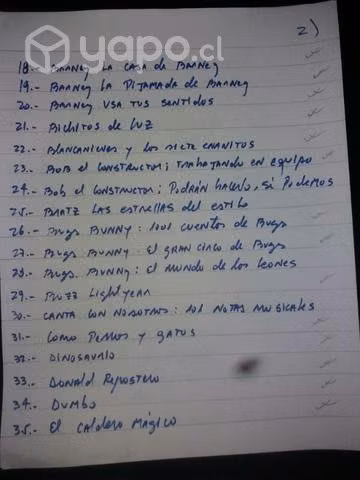 yapo.cl
2)
18.- BARNEY LA CASA DE BARNEY
19.- BARNEY LA PIJAMADA DE BARNEY
20.- BARNEY USA TUS SENTIDOS
21.- BICHITOS DE LUZ
22.- BLANCANIEVES Y LOS SIETE ENANITOS
23.- BOB EL CONSTRUCTOR; TRABAJANDO EN EQUIPO
24.- BOB EL CONSTRUCTOR; PODRÁN HACERLO, SI PODEMOS
25.- BRATZ LAS ESTRELLAS DEL ESTILO
26.- BUGS BUNNY: 1001 CUENTOS DE BUGS
27.- BUGS BUNNY: EL GRAN CIRCO DE BUGS
28.- BUGS BUNNY: EL MUNDO DE LOS LEONES
29.- BUZZ LIGHTYEAR
30.- CANTA CON NOSOTROS: 101 NOTAS MUSICALES
31.- COMO PERROS Y GATOS
32.- DINOSAURIO
33.- DONALD REPOSTERO
34.- DUMBO
35.- EL CALDERO MÁGICO